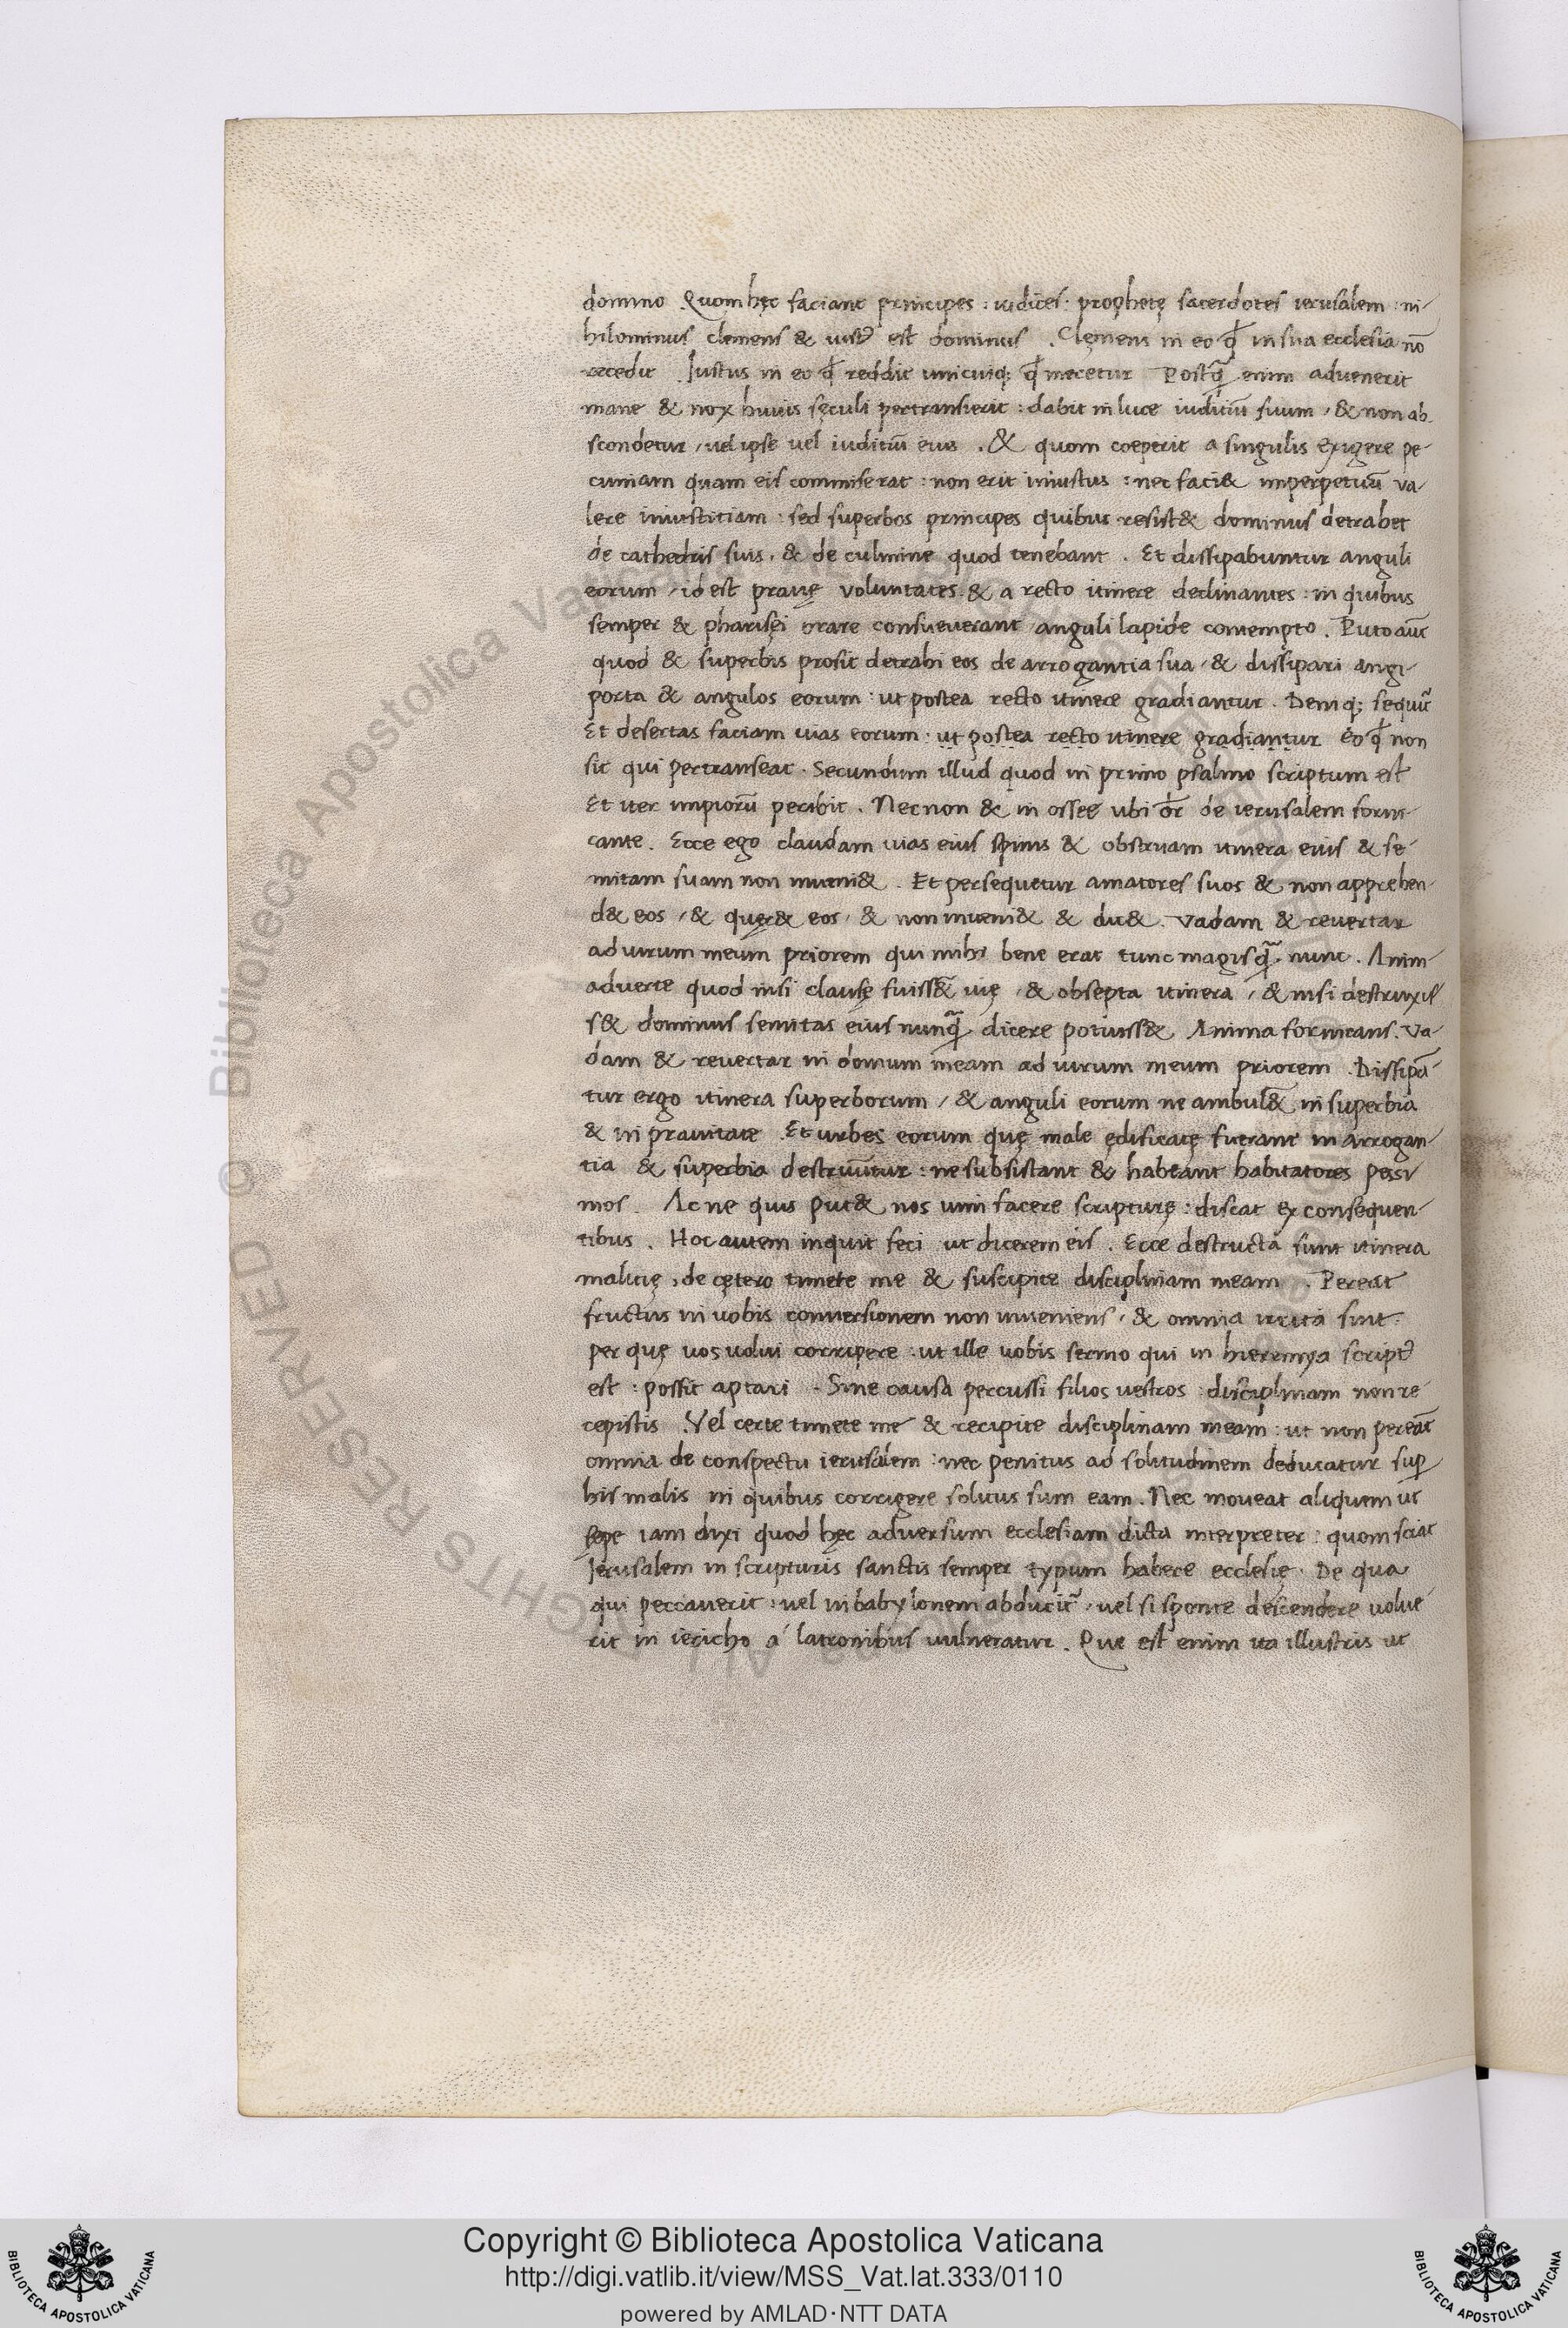 domino. Quom hęc faciant principes: iudices: prophetę sacerdotes ierusalem: ni-
hilominus clemens & iust᷑ est dominus. Clemens in eo ꝙ in sua ecclesia nō
recedit. Justus in eo ꝙ reddit unicuiq; ꝙ meretur. Postq̃ enim advenerit
mane & nox huius sęculi pertransierit: dabit in luce iuditiū suum, & non ab-
scondetur, vel ipse vel iuditiū eius. & quom coeperit a singulis exigere pe-
cuniam quam eis commiserat: non erit iniustus: nec faci& inperpetuū va-
lere iniustitiam: sed superbos principes quibus resist& dominus detrahet
de cathedris suis, & de culmine quod tenebant. Et dissipabuntur anguli
eorum, id est pravę voluntates & a recto itinere declinantes: in quibus
semper & pharisęi orare consueverant anguli lapide contempto. Puto aūt
quod & superbis prosit detrahi eos de arrogantia sua, & dissipari angi-
porta & angulos eorum: ut postea recto itinere gradiantur. Deniq; sequit᷑
Et desertas faciam vias eorum: ut postea recto itinere gradiantur Eo ꝙ non
sit qui pertranseat. Secundum illud quod in primo psalmo scriptum est
Et iter impiorū peribit. Nec non & in osseę ubi dr̄ de ierusalem forni-
cante. Ecce ego claudam vias eius spinis & obstruam itinera eius & se-
mitam suam non inveni&. Et persequetur amatores suos & non apprehen-
d& eos, & quęr& eos, & non inveni& & dic&. vadam & revertar
ad virum meum priorem qui mihi bene erat tunc magis q̃ nunc. Anim-
adverte quod nisi clausę fuiss&̄ vię, & obsepta itinera, & nisi destruxis-
s& dominus semitas eius nunq̃ dicere potuiss& Anima fornicans. va-
dam & revertar in domum meam ad virum meum priorem. Dissipā-
tur ergo itinera superborum, & anguli eorum ne ambul&̄ in superbia
& in pravitate. Et urbes eorum quę male ędificatę fuerant in arrogan-
tia & superbia destruūtur: ne subsistant & habeant habitatores pessi
mos. Ac ne quis put& nos vim facere scripturę: discat ex consequen-
tibus. Hoc autem inquit feci ut dicerem eis. Ecce destructa sunt itinera
malitię, de cętero timete me & suscipite disciplinam meam. Pereat
fructus in vobis conversionem non inveniens, & omnia irrita sint:
per quę vos volui corripere: ut ille vobis sermo qui in hieremya script᷑
est: possit aptari. Sine causa percussi filios vestros: disciplinam non re-
cepistis. Vel certe timete me & recipite disciplinam meam: ut non pereāt
omnia de conspectu ierusalem: nec penitus ad solitudinem deducatur sup̱
his malis in quibus corrigere solitus sum eam. Nec moveat aliquem ut
sępe iam dixi quod hęc adversum ecclesiam dicta interpreter: quom sciat
Jerusalem in scripturis sanctis semper typum habere ecclesię. De qua
qui peccaverit: vel in babylonem abducit᷑, vel si sponte descendere volue
rit in iericho á latronibus vulneratur. Que est enim ita illustris ut
© Biblioteca Apostolica Vaticana
ALL RIGHTS RESERVED
Copyright © Biblioteca Apostolica Vaticana
http://digi.vatlib.it/view/MSS_Vat.lat.333/0110
powered by AMLAD·NTT DATA
BIBLIOTECA APOSTOLICA VATICANA
BIBLIOTECA APOSTOLICA VATICANA